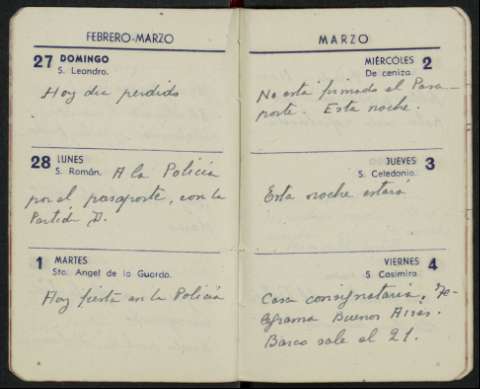 FEBRERO-MARZO
27 DOMINGO
S. Leandro.
Hoy dia perdido
28 LUNES
S. Román. A la Policía
por el pasaporte, con la
Partida D.
1 MARTES
Sto. Angel de la Guarda.
Hoy fiesta en la Policía
MARZO
MIÉRCOLES 2
De ceniza.
No está firmado el Pasa-
porte. Esta noche.
JUEVES 3
S. Celedonio.
Esta noche estará
VIERNES 4
S. Casimiro.
Casa consignataria, Te-
legrama Buenos Aires.
Barco sale el 21.